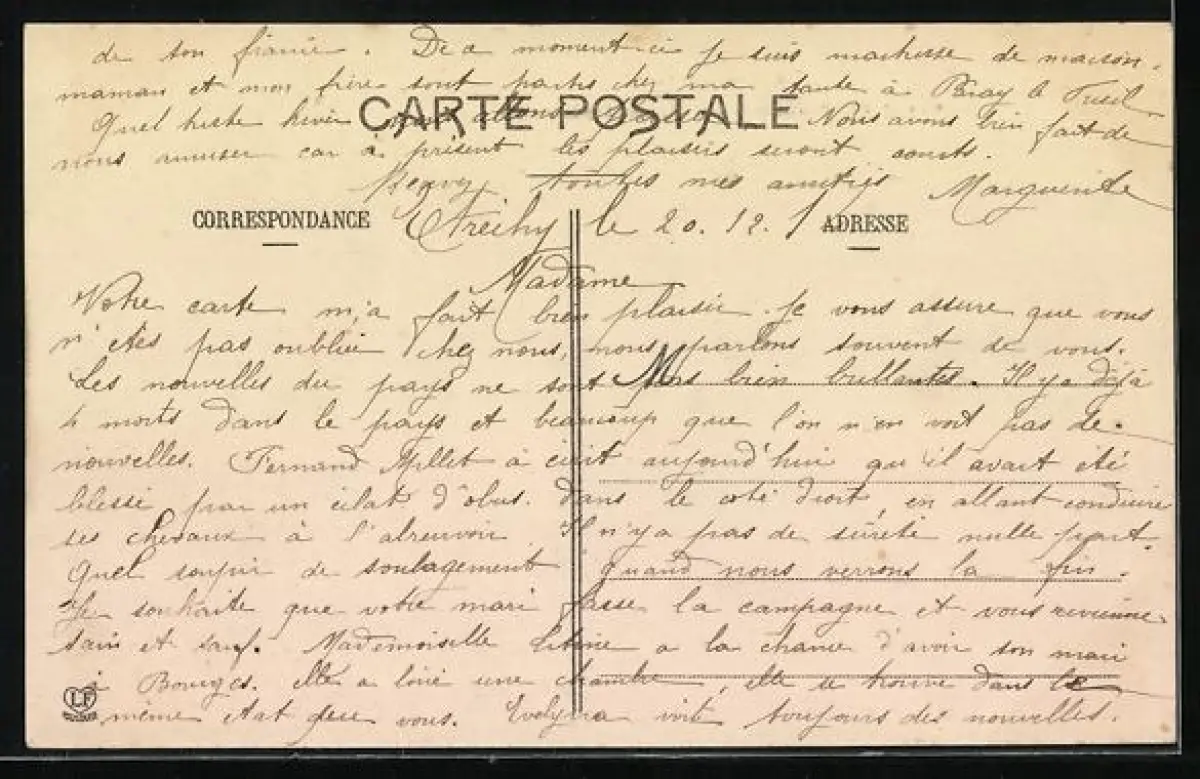 de son fiancé. De ce moment ici je suis maîtresse de maison,
maman et mon frère sont partis chez ma tante à Bray
CARTE POSTALE
Quel triste hiver nous allons passer. Nous avons bien fait de
nous amuser car à présent les plaisirs seront courts.
Recevez toutes mes amitiés Marguerite
CORRESPONDANCE
ADRESSE
le 20.12.
Madame
Votre carte m'a fait bien plaisir. Je vous assure que vous
n'êtes pas oubliée chez nous, nous parlons souvent de vous.
Les nouvelles du pays ne sont pas bien brillantes. Il y a déjà
4 morts dans le pays et beaucoup que l'on n'en voit pas de
nouvelles. Fernand Millet à écrit aujourd'hui qu'il avait été
blessé par un éclat d'obus. dans le côté droit, en allant conduire
ses chevaux à l'abreuvoir. Il n'y a pas de sûreté nulle part.
Quel soupir de soulagement quand nous verrons la fin.
Je souhaite que votre mari fasse la campagne et vous revienne
sain et sauf. Mademoiselle a la chance d'avoir son mari
à Bourges. elle a loué une chambre, elle se trouve dans le
même état que vous. Evelyna voit toujours des nouvelles.
LF